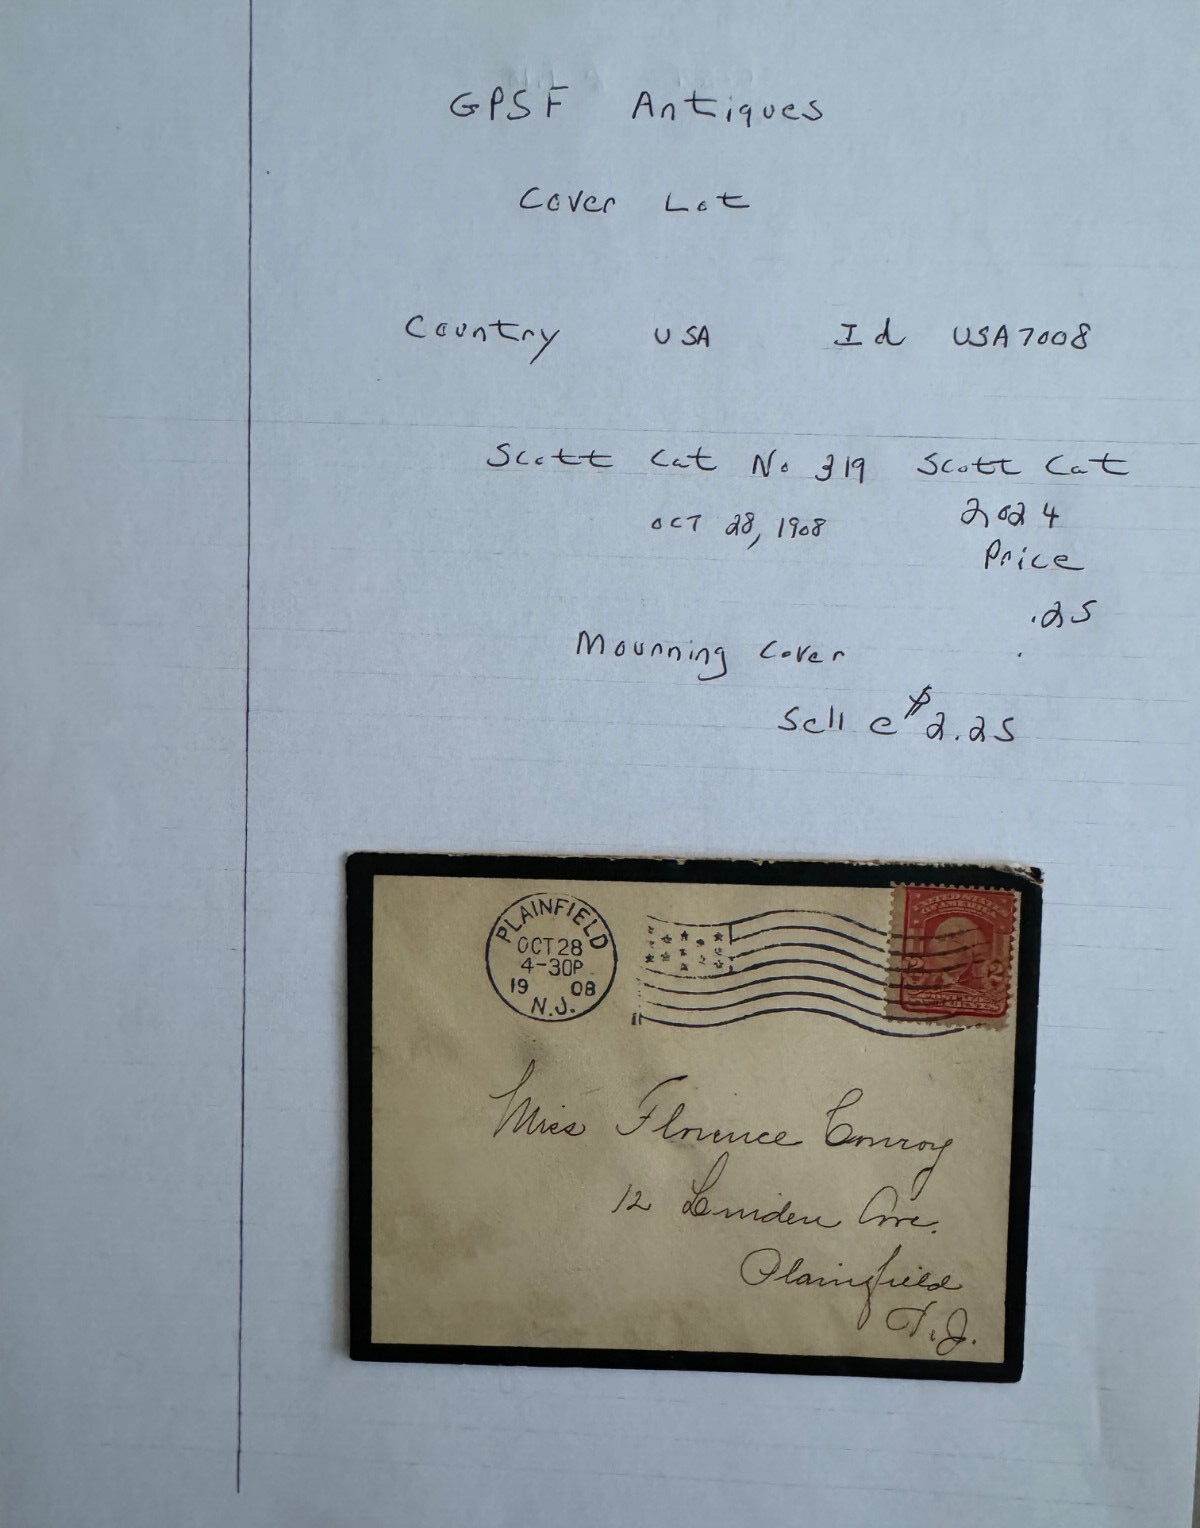 GPSF Antiques
Cover Lot
Country USA Id USA7008
Scott Cat No 319 Scott Cat
OCT 28, 1908 2024
Price
.25
Mourning Cover
Sell @ $2.25
PLAINFIELD
OCT 28
4-30P
19 08
N.J.
UNITED STATES
OF AMERICA
2 2
Miss Florence Conroy
12 Linden Ave.
Plainfield
N.J.